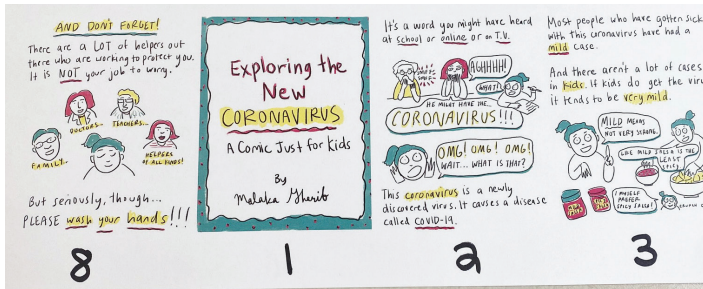 AND DON'T FORGET!
There are a LOT of helpers out
there who are working to protect you.
It is NOT your job to worry.
DOCTORS...
TEACHERS...
FAMILY...
HELPERS
OF ALL KINDS!
But seriously, though...
PLEASE wash your hands!!!
8
Exploring the
New
CORONAVIRUS
A Comic Just for Kids
By
Malaka Gharib
1
It's a word you might have heard
at school or online or on T.V.
AGHHHH!
WHAT?!
HE MIGHT HAVE THE...
CORONAVIRUS!!!
OMG! OMG! OMG!
WAIT... WHAT IS THAT?
This coronavirus is a newly
discovered virus. It causes a disease
called COVID-19.
2
Most people who have gotten sick
with this coronavirus have had a
mild case.
And there aren't a lot of cases
in kids. If kids do get the virus
it tends to be very mild.
MILD MEANS
NOT VERY STRONG.
LIKE MILD SALSA IS THE
LEAST
SPICY
I MYSELF
PREFER
SPICY SALSA!
3